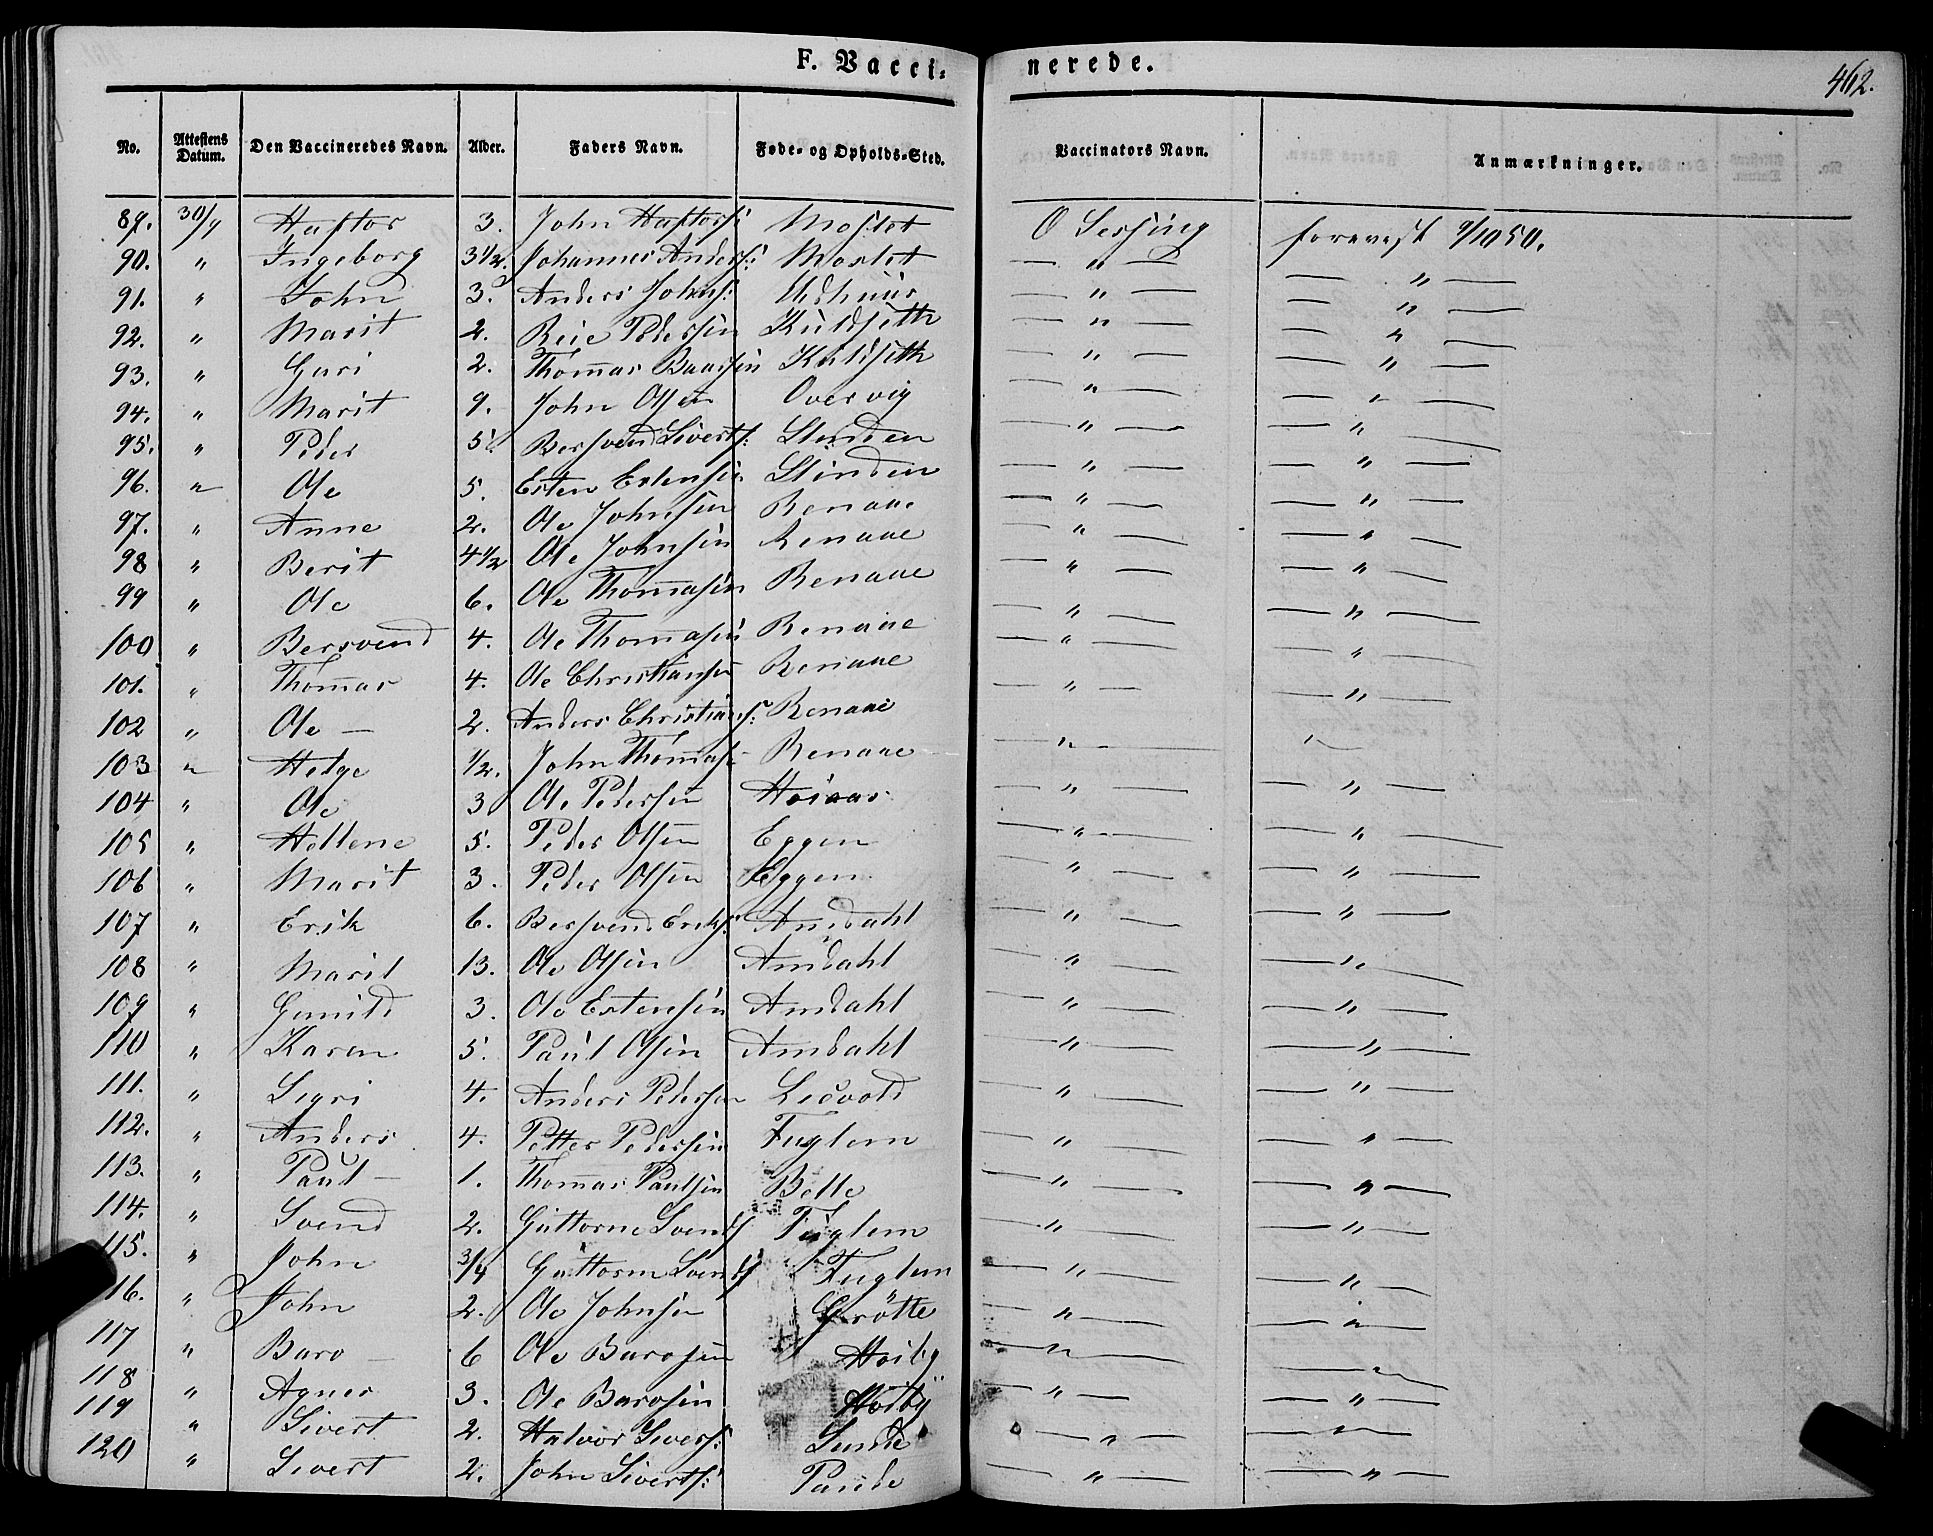 F. Vacci-
nerede.
462.
No. Attestens Datum. Den Vaccineredes Navn. Alder. Faders Navn. Føde- og Opholds-Sted. Vaccinators Navn. Anmærkninger.
89. 30/9 Haftor 3. John Haftors: Mostet O Sessing forevist 9/10 50.
90. " Ingeborg 3 1/2. Johannes Anders: Mostet — " — — " —
91. " John 3. Anders Johns: Udhuus — " — — " —
92. " Marit 2. Reie Pedersen Kuldseth — " — — " —
93. " Guri 2. Thomas Baarsen Kuldseth — " — — " —
94. " Marit 9. John Olsen Overvig — " — — " —
95. " Peder 5. Bersvend Siverts: Slinden — " — — " —
96. " Ole 5. Esten Estensen Slinden — " — — " —
97. " Anne 2. Ole Johnsen Renaae — " — — " —
98 " Berit 4 1/2 Ole Johnsen Renaae — " — — " —
99 " Ole 6. Ole Thomasen Renaae — " — — " —
100 " Bersvend 4. Ole Thomasen Renaae — " — — " —
101. " Thomas 4. Ole Christiansen Renaae — " — — " —
102 " Ole — 2. Anders Christians: Renaae — " — — " —
103 " Helge 1/2. John Thomas: Renaae — " — "
104 " Ole 3 Ole Pedersen Høiaas — " — — " —
105 " Hellene 5. Peder Olsen Eggen — " — — " —
106 " Marit 3. Peder Olsen Eggen — " — — " —
107 " Erik 6. Bersvend Eriks: Amdahl — " — — " —
108 " Marit 13. Ole Olsen Amdahl — " — — " —
109 " Gunild 3. Ole Estensen Amdahl — " — — " —
110 " Karen 5. Paul Olsen Amdahl — " — — " —
111. " Sigri 4. Anders Pedersen Leevold — " — — " —
112. " Anders 4. Petter Pedersen Fuglem — " — — " —
113. " Paul — 1. Thomas Paulsen Belle — " — — " —
114. " Svend 2. Guttorm Svends Fuglem — " — — " —
115. " John 3/4 Guttorm Svends Fuglem — " — — " —
116. " John 2. Ole Johnsen Grøtte — " — — " —
117 " Baro — 6 Ole Barosen Høiby — " — — " —
118 " Agnes 3. Ole Barosen Høiby — " — — " —
119 " Sivert 2. Halvor Sivers: Sunde — " — — " —
120 " Sivert 2. John Siverts: Paude — " — — " —